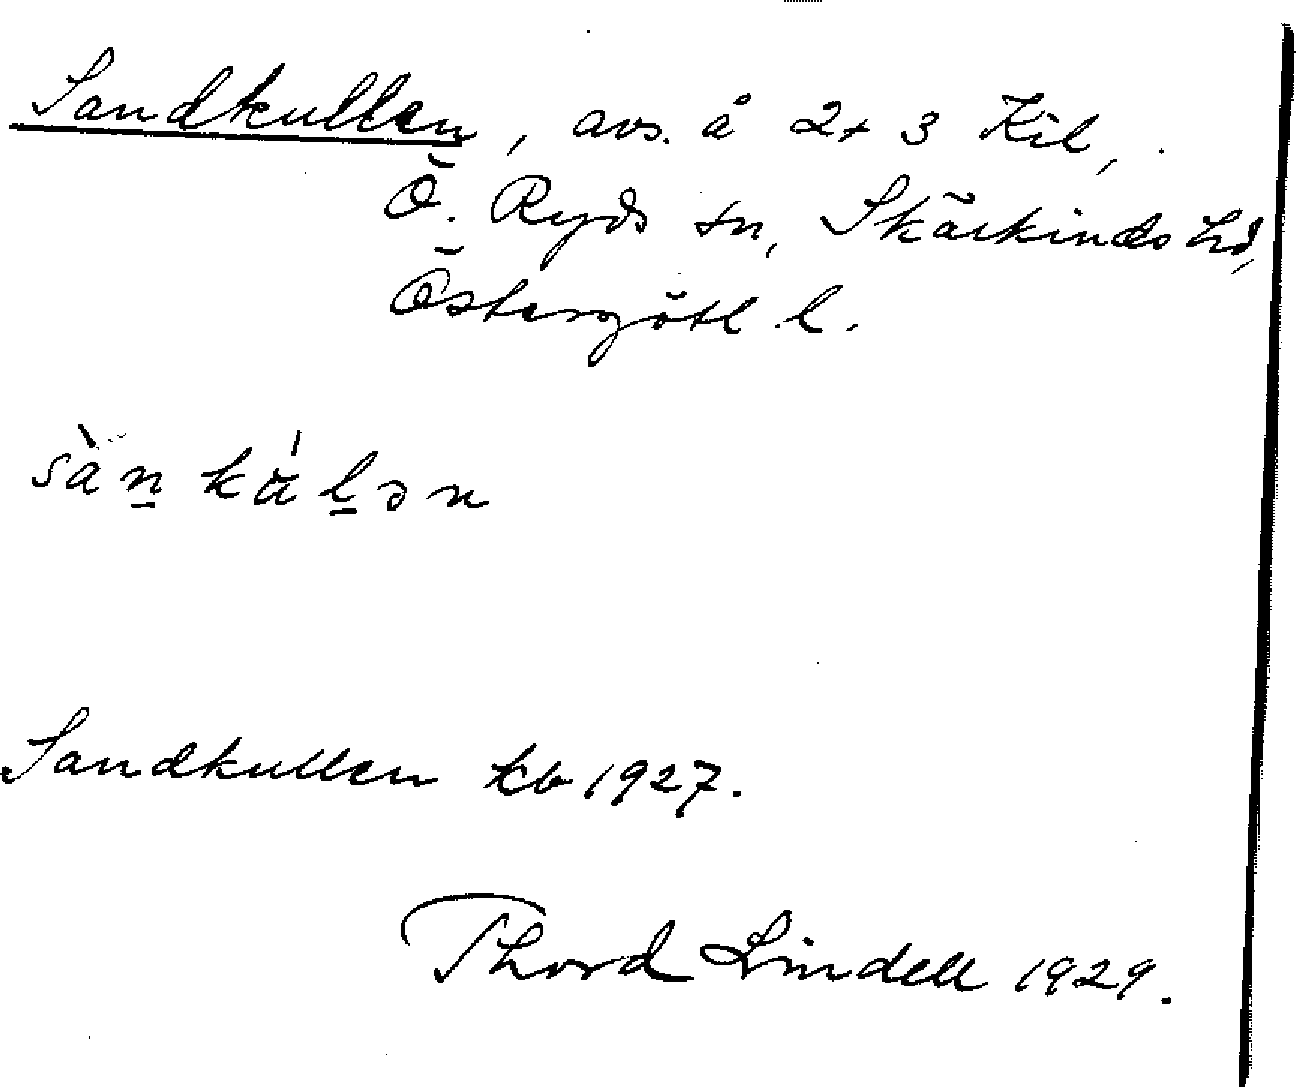 Sandkullen, avs. å 2+3 Kil,
Ö. Ryds sn, Skärkinds hd,
Östergötl. l.
Sandkullen kb 1927.
Thord Lindell 1929.